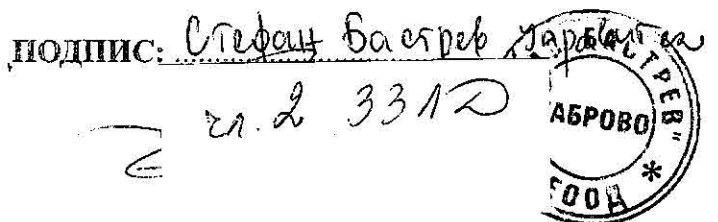 ПОДПИС: Стефан Бастрев Управител
чл. 2 ЗЗЛД
БАСТРЕВ"
АБРОВО
ЕООД *